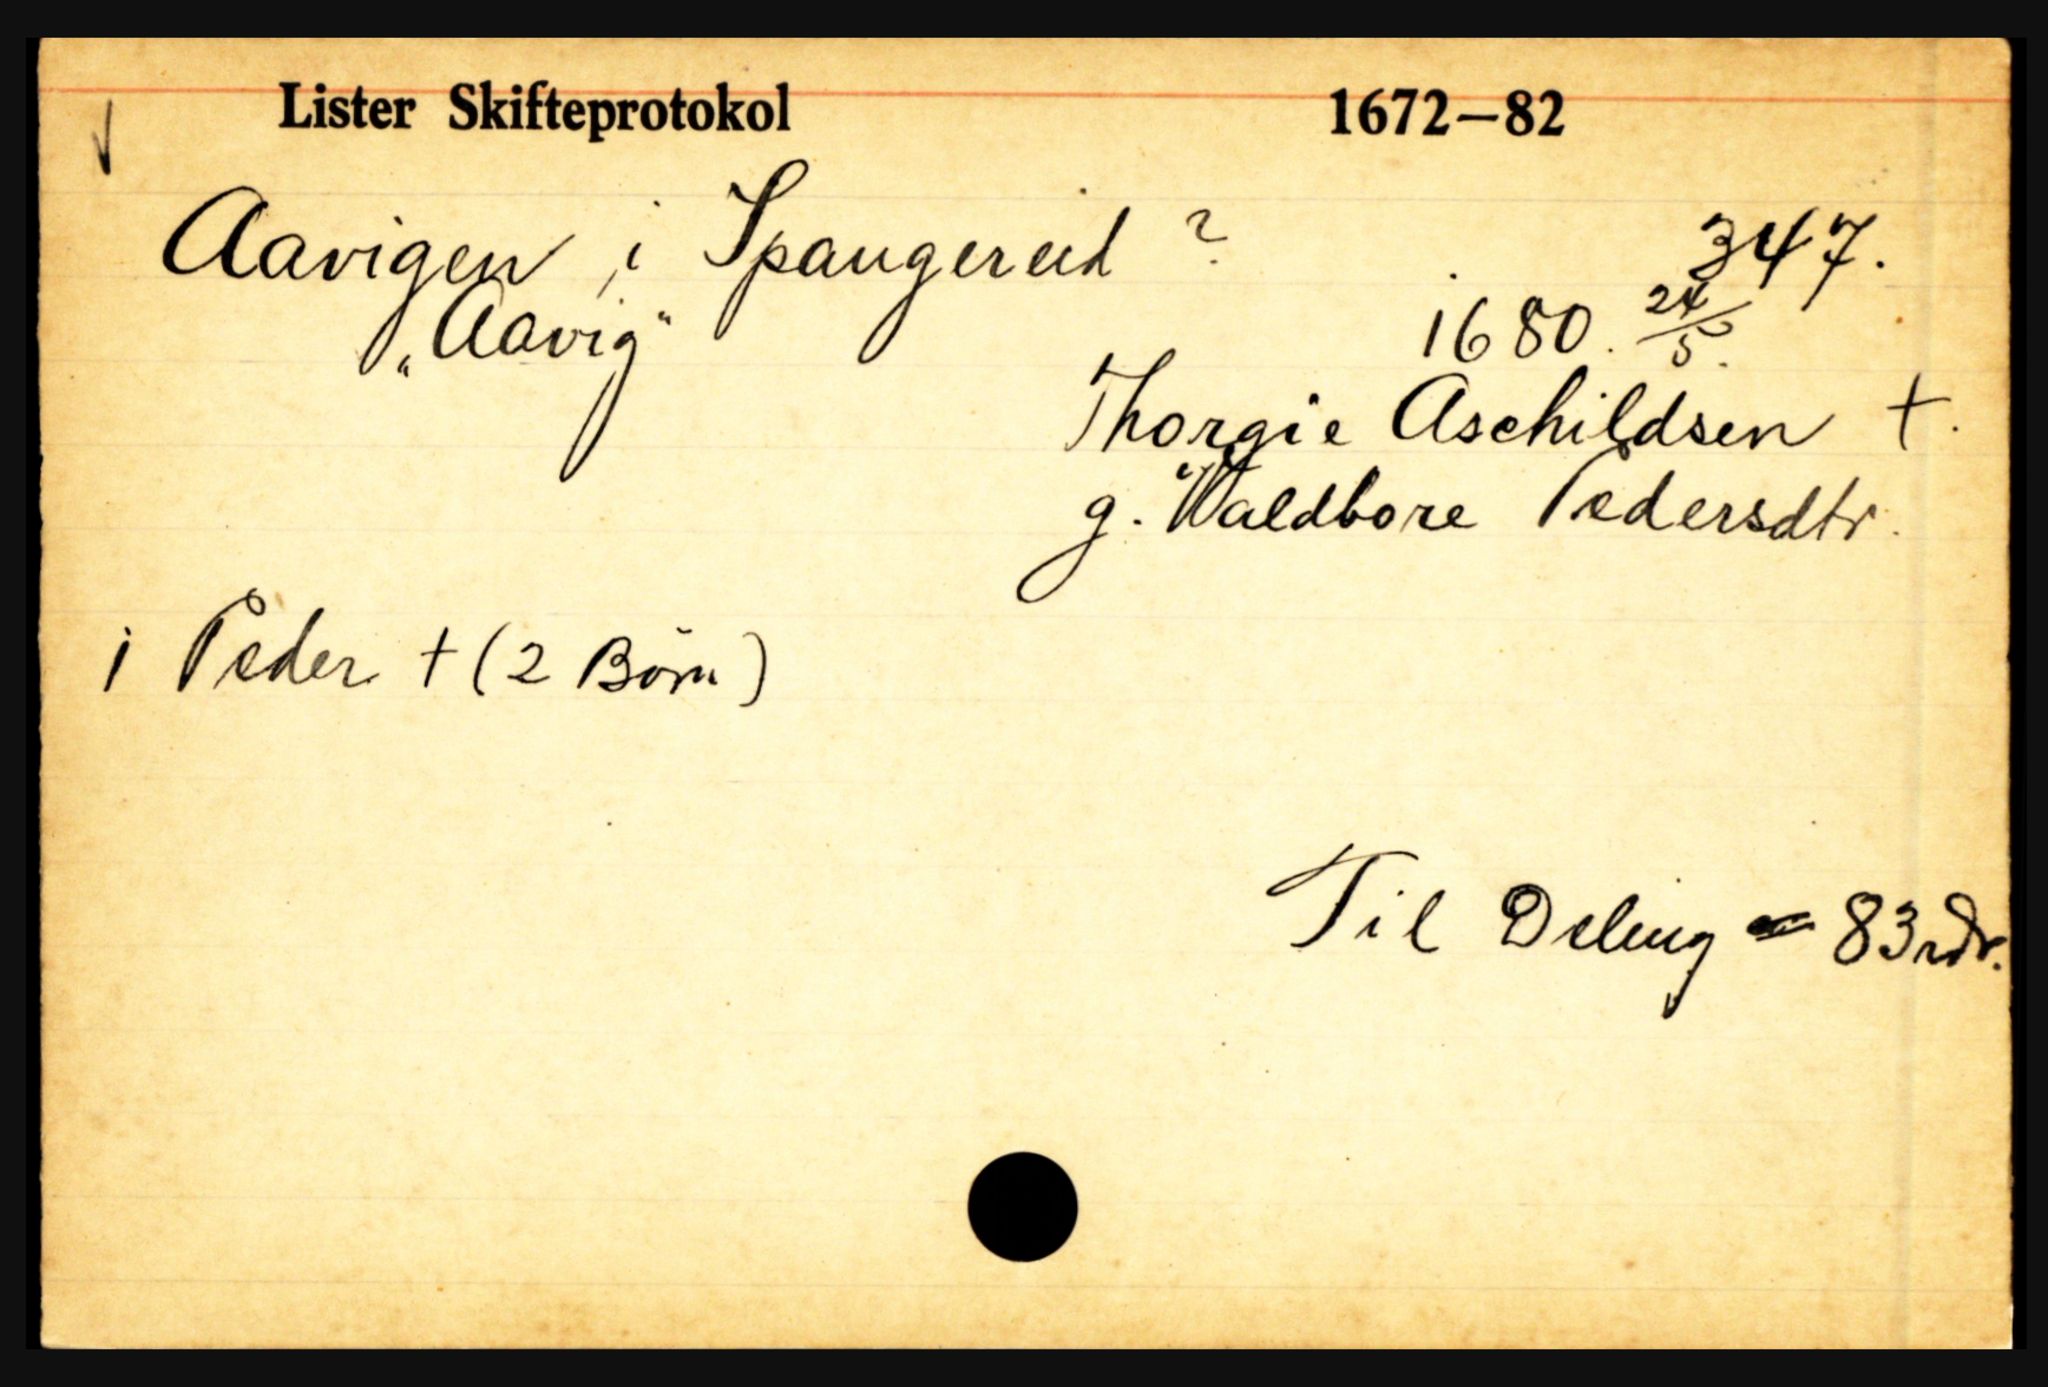 Lister Skifteprotokol 1672–82
Aavigen i Spangereid ? 347.
„Aavig“ 1680. 24/5.
Thorgie Aschildsen †.
g. Waldbore Pedersdtr.
1 Peder † (2 Börn)
Til Deling = 83 rdr.